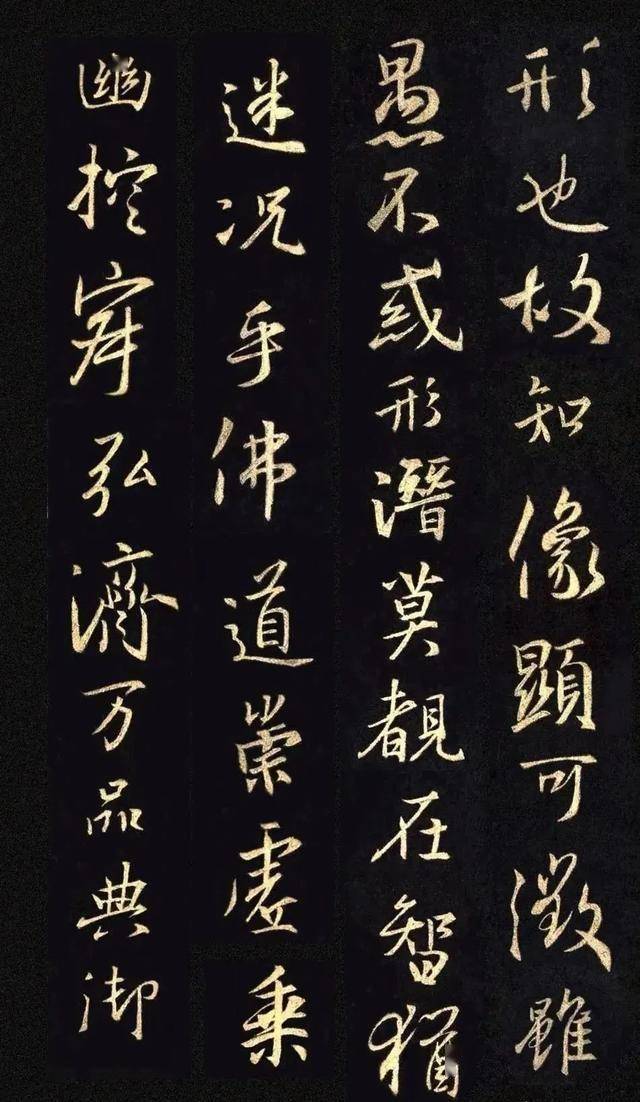 形也故知像顯可徵雖
愚不惑形潛莫覩在智猶
迷况乎佛道崇虛乘
幽控寂弘濟万品典御